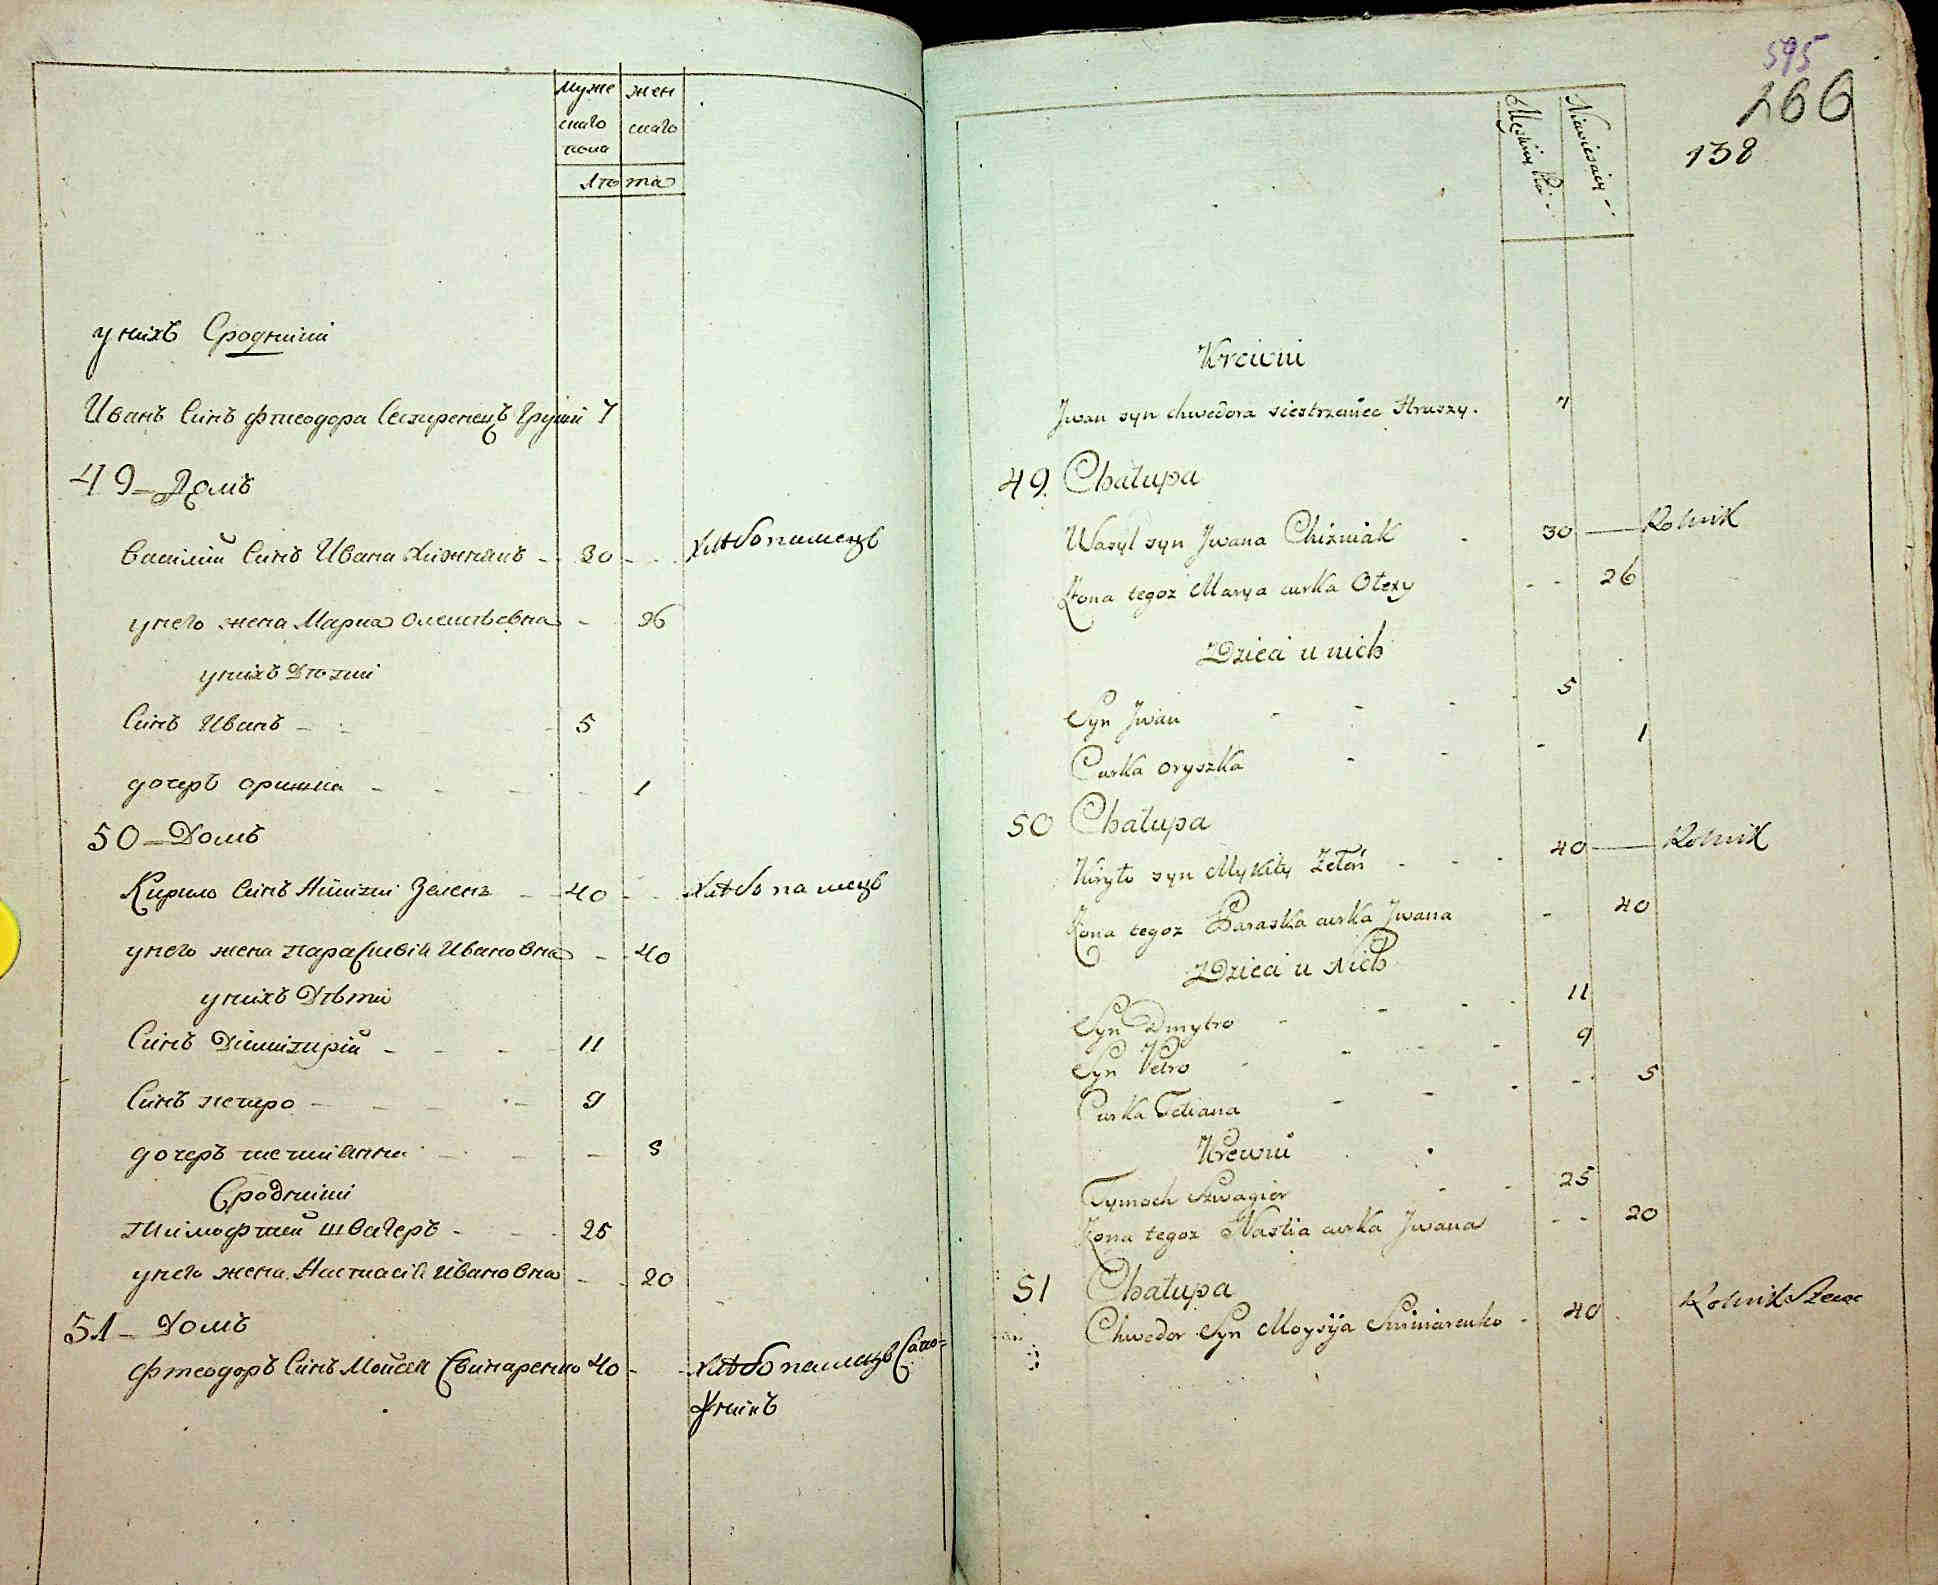 муже
скаго
пола
жен
скаго
лѣта
у нихъ Сродники
Иванъ Синъ Фтеодора Сестренецъ Груши 7
49 – Домъ
Василий Синъ Ивана Хижнякъ – 30 – хлѣбопашецъ
у него жена Мариа Олексѣевна – 26
у нихъ Дѣти
Синъ Иванъ – 5
дочеръ оришка – 1
50 – Домъ
Кирило Синъ Микити Зеленъ – 40 – хлѣбопашецъ
у него жена параскивия Ивановна – 40
у нихъ Дѣти
Синъ Димитрий – 11
Синъ петро – 9
дочеръ татианна – 5
Сродники
Тимофтей швагеръ – 25
у него жена Настасия Ивановна – 20
51 – Домъ
Фтеодоръ Синъ Мойсея Свинаренко 40 – хлѣбопашецъ Сапо=
жникъ
595
266
138
Krewni
Jwan syn chwedora siestrzaniec Hruszy. 7
49. Chałupa
Wasyl syn Jwana Chiżniak 30 — Rolnik
Żona tegoż Marya curka Olexy 26
Dzieci u nich
Syn Jwan 5
Curka oryszka 1
50 Chałupa
Kiryło syn Mykity Zeleń 40 — Rolnik
Żona tegoż Paraska curka Jwana 40
Dzieci u Nich
Syn Dmytro 11
Syn Petro 9
Curka Tetiana 5
Krewni
Tymoch Szwagier 25
Żona tegoż Nastia curka Jwana 20
51 Chałupa
Chwedor Syn Moysija Swinarenko 40 Rolnik Szewc